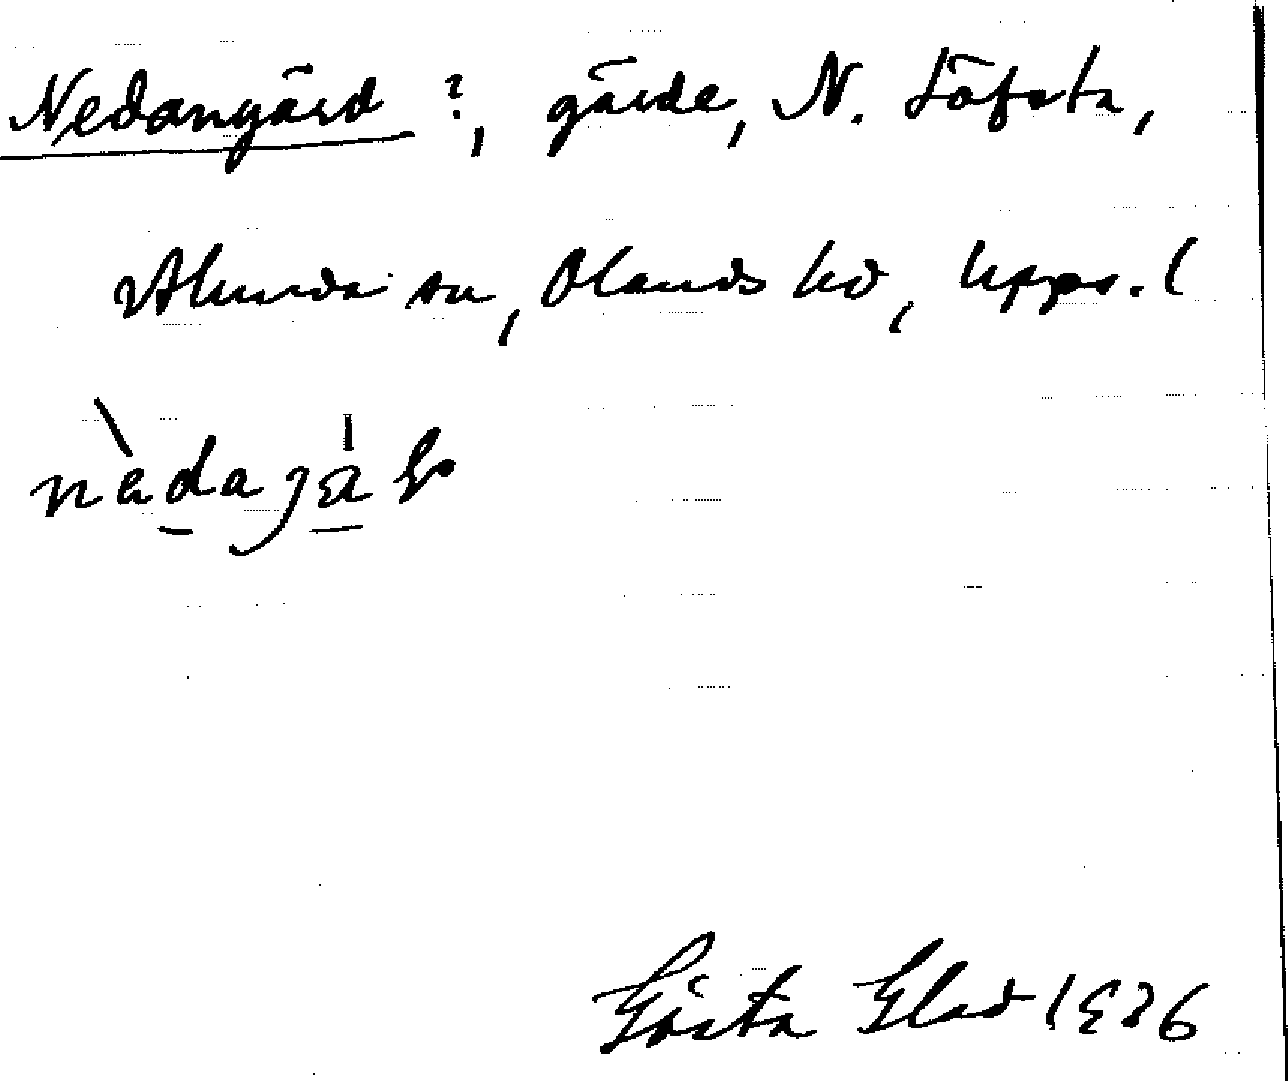 Nedangärd ?, gärde, N. Löfsta,
Alunda sn, Olands hd, Upps. l
Gösta Elad 1926